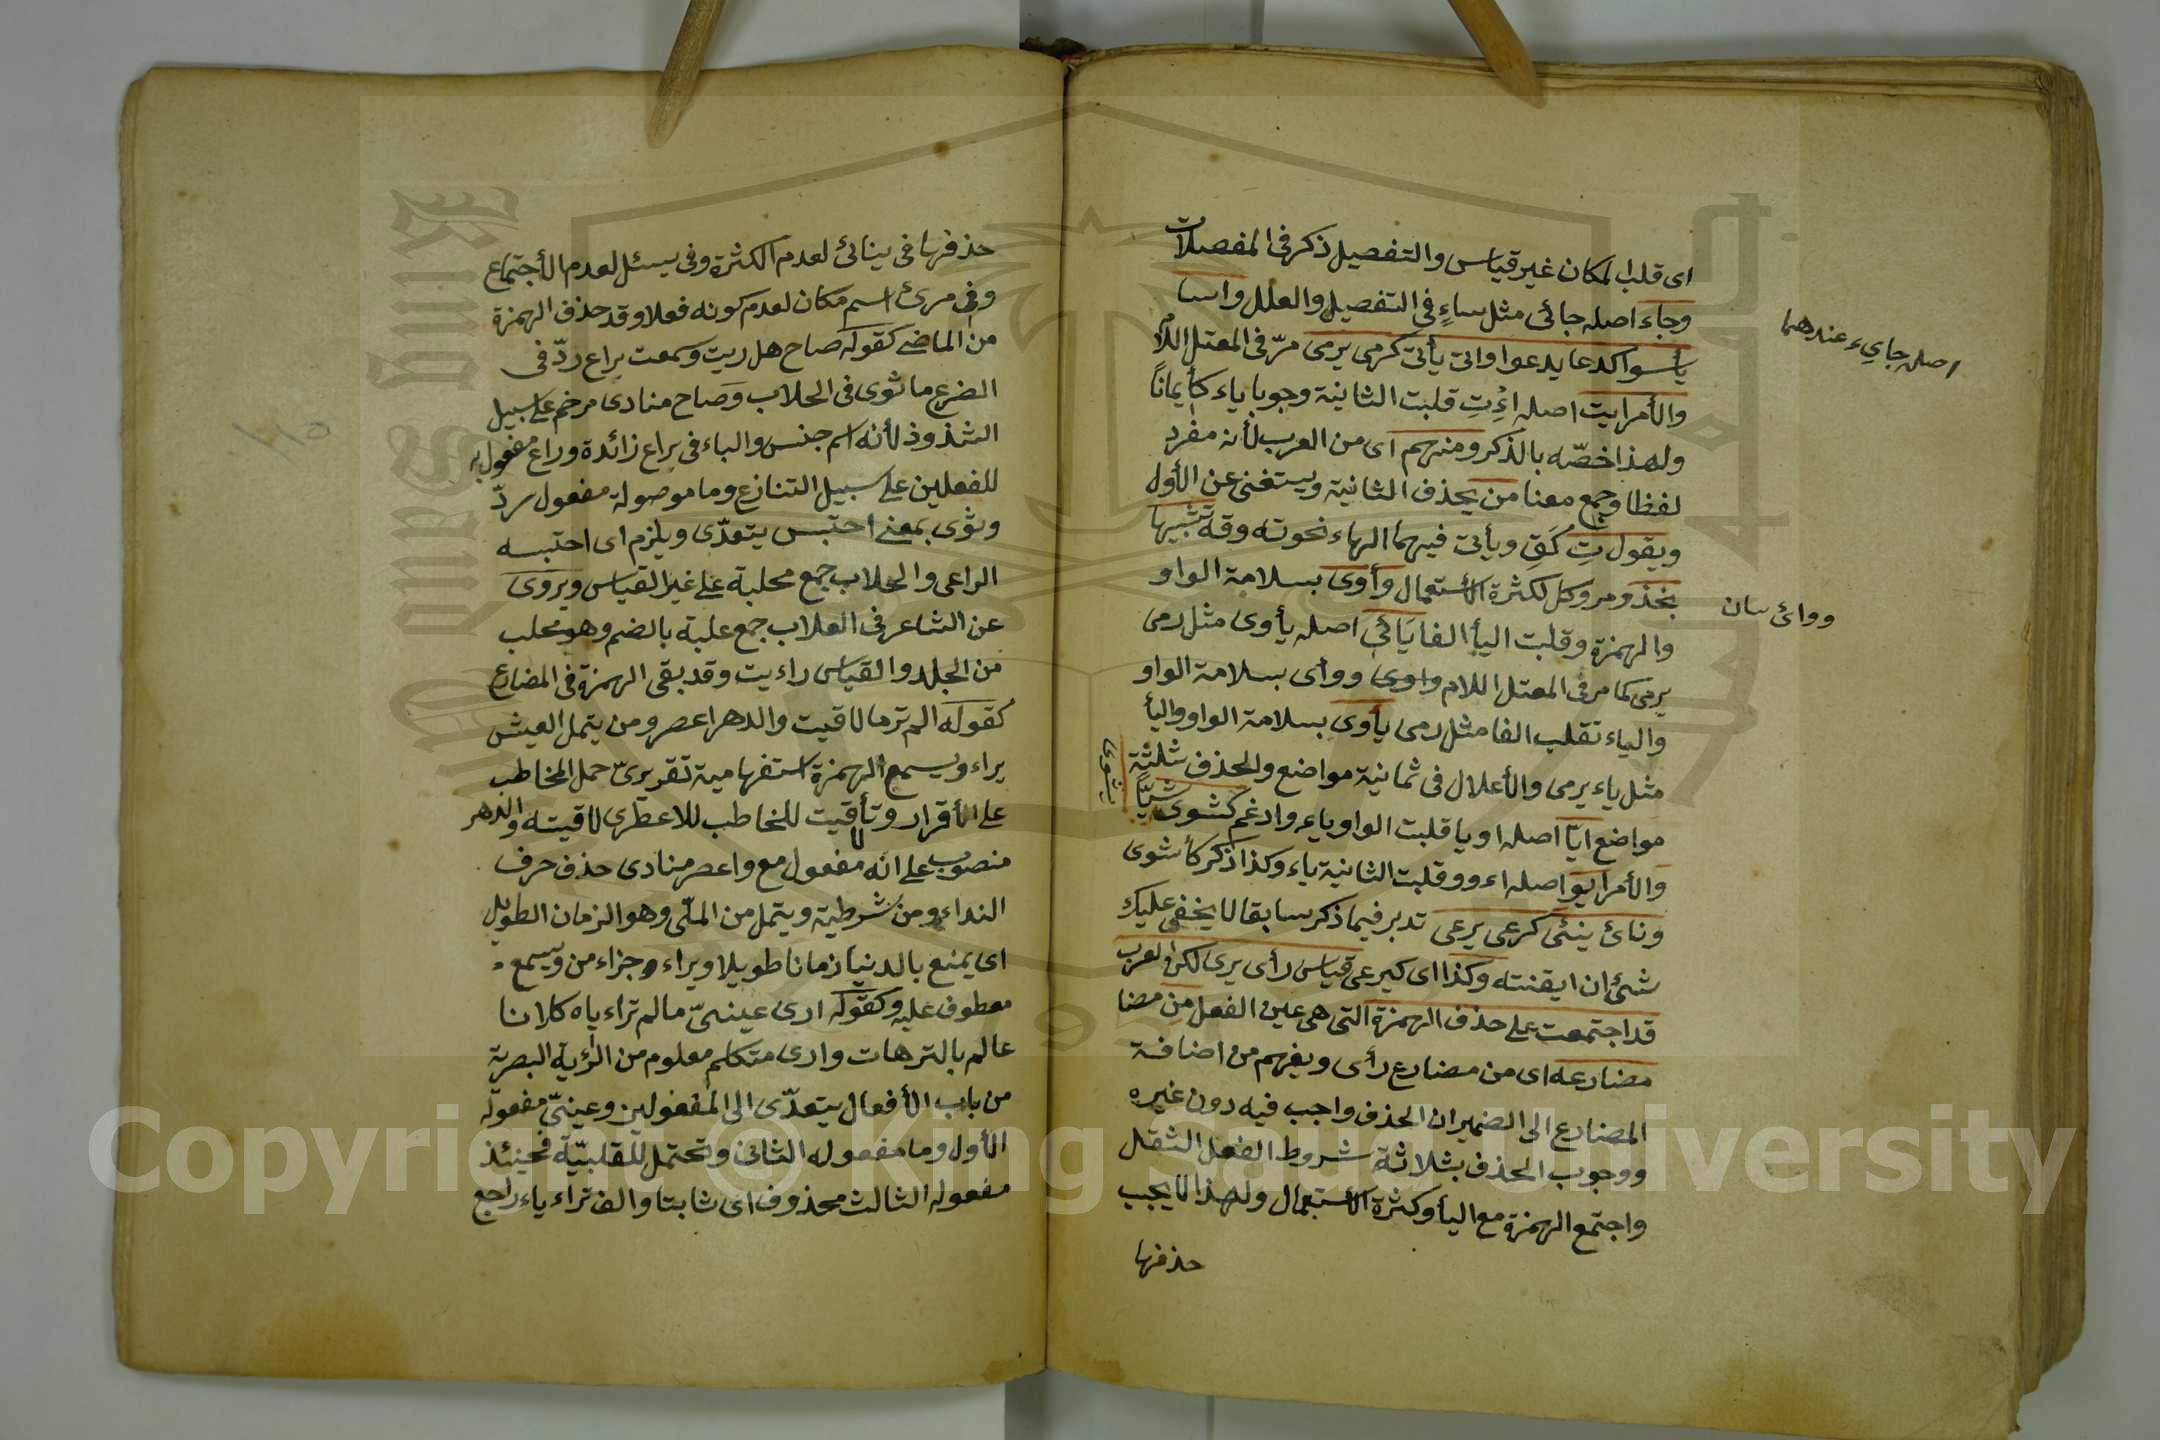 اى قلبا لمكان غير قياس والتفصيل ذكر فى المفصلات
وجاء اصله جائى مثل ساءٍ فى التفصيل والعلل واسا
يأسوا كدعا يدعوا واتى يأتى كرمى يرمى مرّ فى المعتل اللام
والأمر ايت اصله اءْتِ قلبت الثانية وجوبا ياء كأيمانًا
ولهذا خصّه بالذكر ومنهم اى من العرب لأنه مفرد
لفظا وجمع معنا من يحذف الثانية ويستغنى عن الأول
ويقول تِ كَقِ ويأتى فيهما الهاء نحو ته وقه تشبيها
بخذ ومر وكل لكثرة الأستعمال وأوى بسلامة الواو
والهمزة وقلبت اليأ الفا يَائى اصله يأوى مثل رمى
يرمى كما مر فى المعتل اللام واوى ووأى بسلامة الواو
والياء تقلب الفا مثل رمى يأوى بسلامة الواو واليأ
مثل ياء يرمى والأعلال فى ثمانية مواضع والحذف ثلثة
مواضع ايّا اصله اويا قلبت الواو ياء وادغم كشوى شيًّا
يشوى
والأمر ايو اصله اءوو قلبت الثانية ياء وكذا ذكر كأشوى
ونائ ينئى كرعى يرعى تدبر فيما ذكر سابقا لا يخفى عليك
شئ ان ايقنته وكذا اى كيرعى قياس رأى يرى لكن العرب
قد اجتمعت على حذف الهمزة التى هى عين الفعل من مضا
مضارعه اى من مضارع رأى ويفهم من اضافة
المضارع الى الضمير ان الحذف واجب فيه دون غيره
ووجوب الحذف بثلاثة شروط الفعل الثقل
واجتمع الهمزة مع اليأ وكثرة الأستعمال ولهذا لا يجب
حذفها
اصله جايىء عندهما
ووائ سان
حذفها فى ينائى لعدم الكثرة وفى يسئل لعدم الأجتماع
وفى مرئ اسم مكان لعدم كونه فعلا وقد حذف الهمزة
من الماضى كقوله صاح هل ريت وسمعت براع ردّ فى
الضرع ما ثوى فى الحلاب وصاح منادى مرخم على سبيل
الشذوذ لأنه اسم جنس والباء فى براع زائدة وراع مفعول به
للفعلين على سبيل التنازع وما موصولة مفعول ردّ
وثوى بمعنى احتبس يتعدّى ويلزم اى احتبسه
الراعى والحلاب جمع محلبة على غير القياس ويروى
عن الشاعر فى العلاب جمع علبة بالضم وهو محلب
من الجلد والقياس راءيت وقد بقى الهمزة فى المضارع
كقوله الم تر ما لاقيت والدهر اعصر ومن يتمل العيش
يراء ويسمع الهمزة استفهامية تقريرىّ حمل المخاطب
على الأقرار وتأقيت للمخاطب لا قيته والدهر
منصوب على انه مفعول مع واعصر منادى حذف حرف
النداء ومن شرطية ويتمل من الملّى وهو الزمان الطويل
اى يمتع بالدنيا زمانا طويلا ويراء وجزاء من ويسمع
معطوف عليه وكقوله ارى عينىّ ما لم تراءياه كلانا
عالم بالترهات وارى متكلم معلوم من الرؤية البصرية
من باب الأفعال يتعدّى الى المفعولين وعينىّ مفعوله
الأول وما مفعوله الثانى وتحتمل للقلبيّة فحينئذ
مفعوله الثالث محذوف اى ثابتا والف تراء ياء راجع
١١٥
Copyright © King Saud University